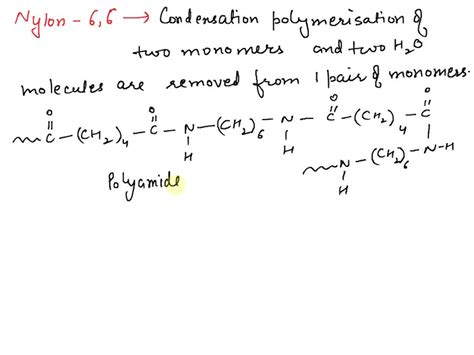 Nylon - 6,6 → Condensation polymerisation of
two monomers and two H2O
molecules are removed from 1 pair of monomers.
O O O O
~ C - (CH2)4 - C - N - (CH2)6 - N - C - (CH2)4 - C
H H N-H
~ N - (CH2)6
H
Polyamide